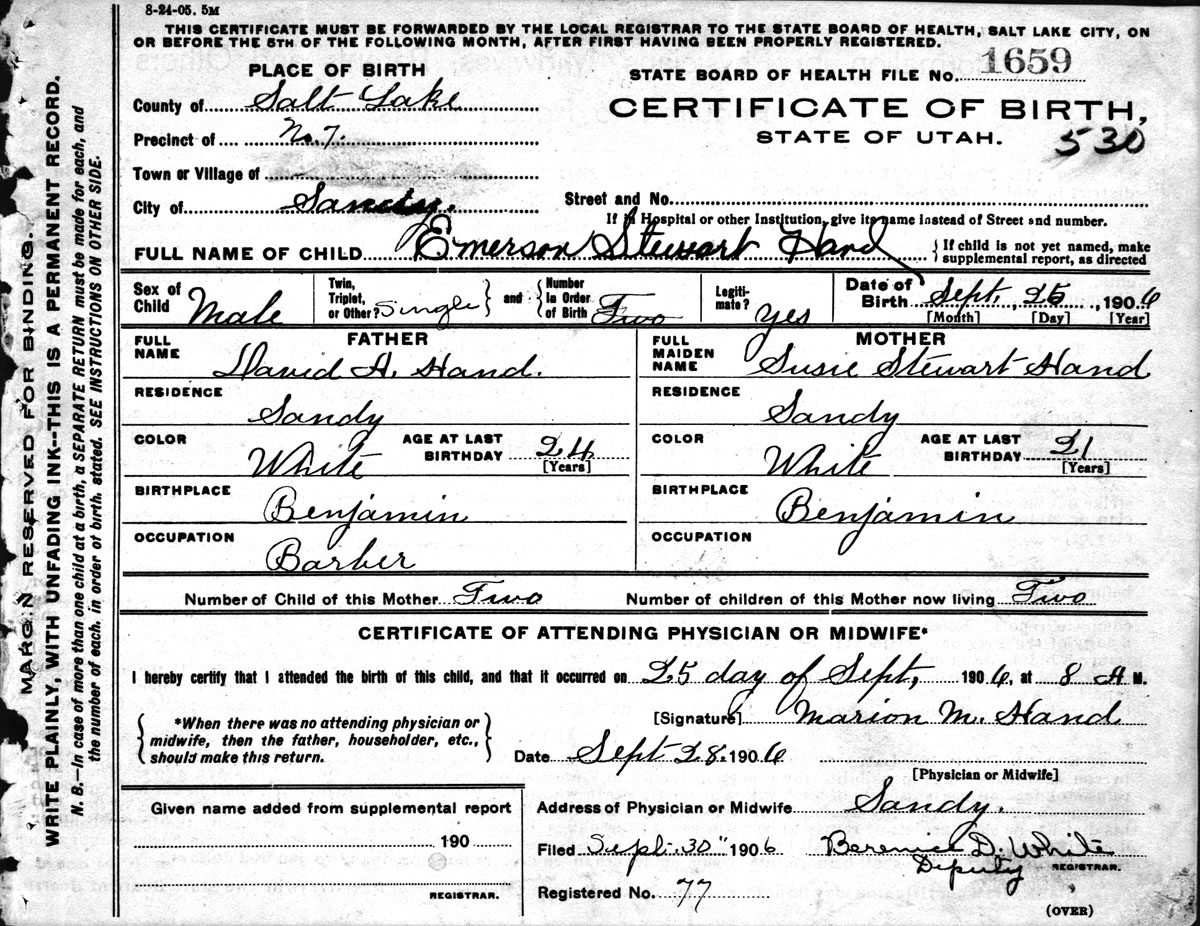 8-24-05. 5M
THIS CERTIFICATE MUST BE FORWARDED BY THE LOCAL REGISTRAR TO THE STATE BOARD OF HEALTH, SALT LAKE CITY, ON
OR BEFORE THE 5TH OF THE FOLLOWING MONTH, AFTER FIRST HAVING BEEN PROPERLY REGISTERED.
MARGIN RESERVED FOR BINDING.
WRITE PLAINLY, WITH UNFADING INK--THIS IS A PERMANENT RECORD.
N. B.—In case of more than one child at a birth, a SEPARATE RETURN must be made for each, and
the number of each, in order of birth, stated. SEE INSTRUCTIONS ON OTHER SIDE.
PLACE OF BIRTH
County of Salt Lake
Precinct of No. 7.
Town or Village of
City of Sandy.
STATE BOARD OF HEALTH FILE No. 1659
CERTIFICATE OF BIRTH,
STATE OF UTAH.
530
Street and No.
If in Hospital or other Institution, give its name instead of Street and number.
FULL NAME OF CHILD Emerson Stewart Hand { If child is not yet named, make
supplemental report, as directed
Sex of Child Male
Twin, Triplet, or Other? Single } and { Number in Order of Birth Two
Legitimate? Yes
Date of Birth Sept. 25, 1906
[Month] [Day] [Year]
FATHER
FULL NAME David A. Hand.
RESIDENCE Sandy
COLOR White AGE AT LAST BIRTHDAY 24
[Years]
BIRTHPLACE Benjamin
OCCUPATION Barber
MOTHER
FULL MAIDEN NAME Susie Stewart Hand
RESIDENCE Sandy
COLOR White AGE AT LAST BIRTHDAY 21
[Years]
BIRTHPLACE Benjamin
OCCUPATION
Number of Child of this Mother Two Number of children of this Mother now living Two
CERTIFICATE OF ATTENDING PHYSICIAN OR MIDWIFE*
I hereby certify that I attended the birth of this child, and that it occurred on 25 day of Sept, 1906, at 8 A M.
{ *When there was no attending physician or
midwife, then the father, householder, etc.,
should make this return. }
[Signature] Marion M. Hand
Date Sept 28. 1906
[Physician or Midwife]
Given name added from supplemental report
190
REGISTRAR.
Address of Physician or Midwife Sandy.
Filed Sept. 30" 1906 Berenice D. White
Deputy REGISTRAR.
Registered No. 77
(OVER)